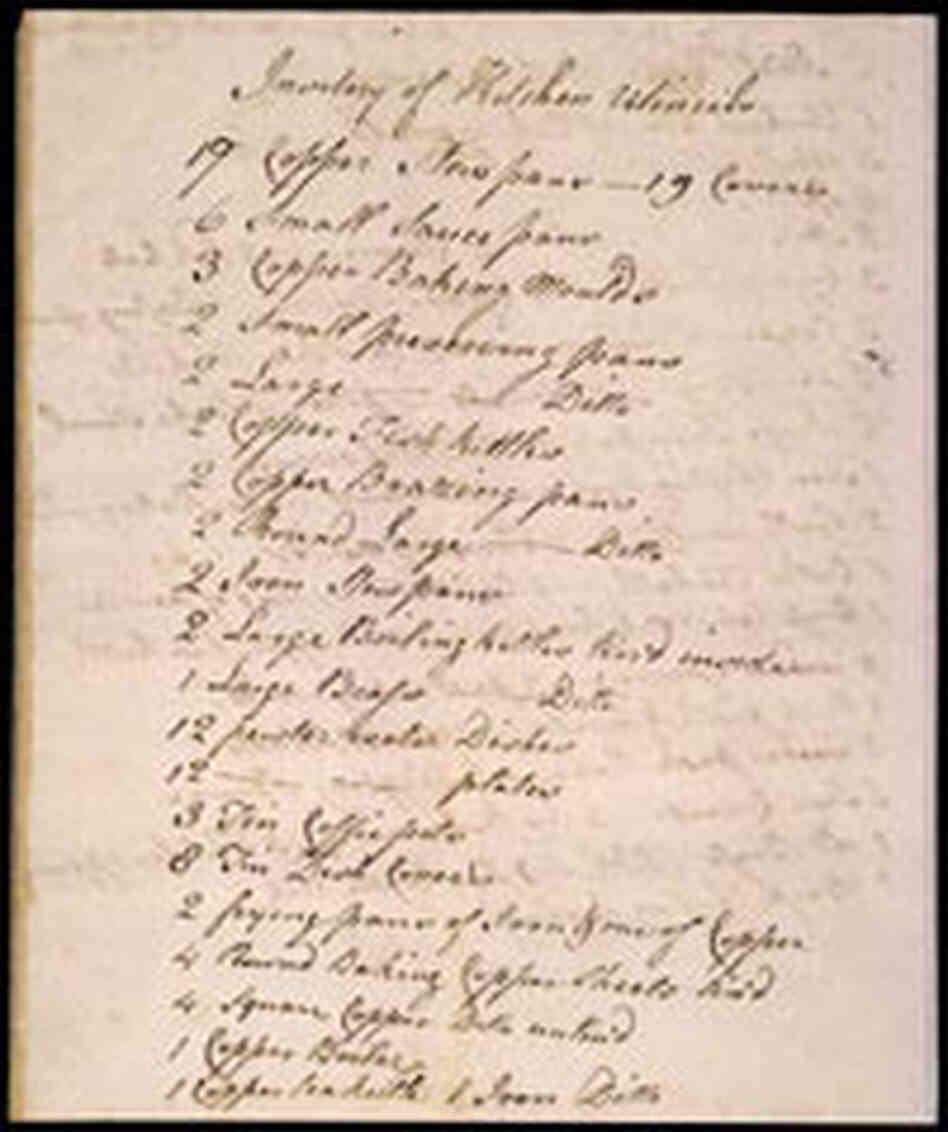 Inventory of Kitchen Utincils
19 Copper Stew pans — 19 Covers
6 Small Sauce pans
3 Copper Baking Moulds
2 Small preserving pans
2 Large — — Ditto
2 Copper Fish kettles
2 Copper Brazing pans
2 Round Large — Ditto
2 Iron Stew pans
2 Large Boiling kettles tin'd inside
1 Large Brass — Ditto
12 pewter water Dishes
12 — — plates
3 Tin Coffie pots
8 Tin Dish Covers
2 frying pans of Iron & one of Copper
4 Round Baking Copper Sheets tin'd
4 Square Copper Ditto untin'd
1 Copper Boiler
1 Copper tea kettle 1 Iron Ditto